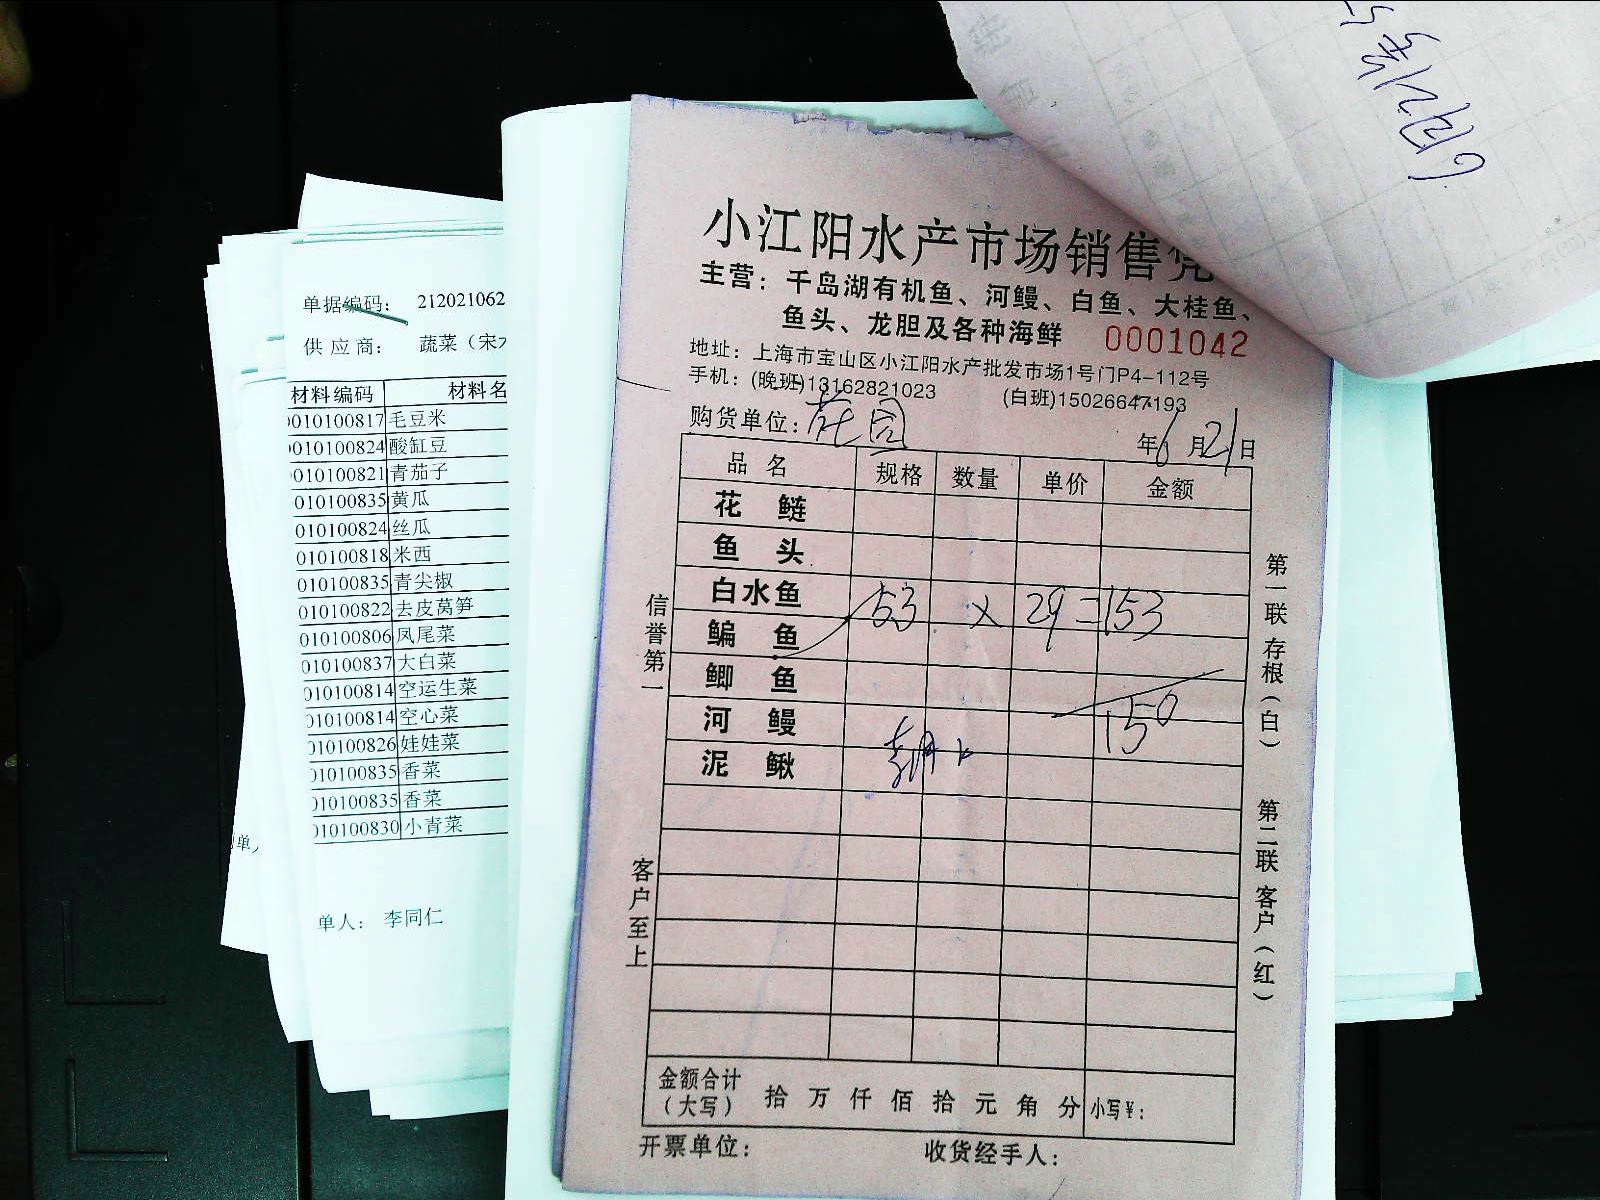 单据编码： 212021062
供应商： 蔬菜（宋
材料编码 材料名
010100817 毛豆米
010100824 酸缸豆
010100821 青茄子
010100835 黄瓜
010100824 丝瓜
010100818 米西
010100835 青尖椒
010100822 去皮莴笋
010100806 凤尾菜
010100837 大白菜
010100814 空运生菜
010100814 空心菜
010100826 娃娃菜
010100835 香菜
010100835 香菜
010100830 小青菜
单人： 李同仁
单
小江阳水产市场销售凭
主营：千岛湖有机鱼、河鳗、白鱼、大桂鱼、
鱼头、龙胆及各种海鲜 0001042
地址：上海市宝山区小江阳水产批发市场1号门P4-112号
手机：(晚班)13162821023 (白班)15026647193
购货单位：花园 年6月21日
品名 规格 数量 单价 金额
花鲢
鱼头
白水鱼 53 × 29=153
鳊鱼
鲫鱼
河鳗 150
泥鳅
信誉第一
客户至上
第一联 存根（白）
第二联 客户（红）
金额合计（大写） 拾 万 仟 佰 拾 元 角 分 小写¥：
开票单位： 收货经手人：